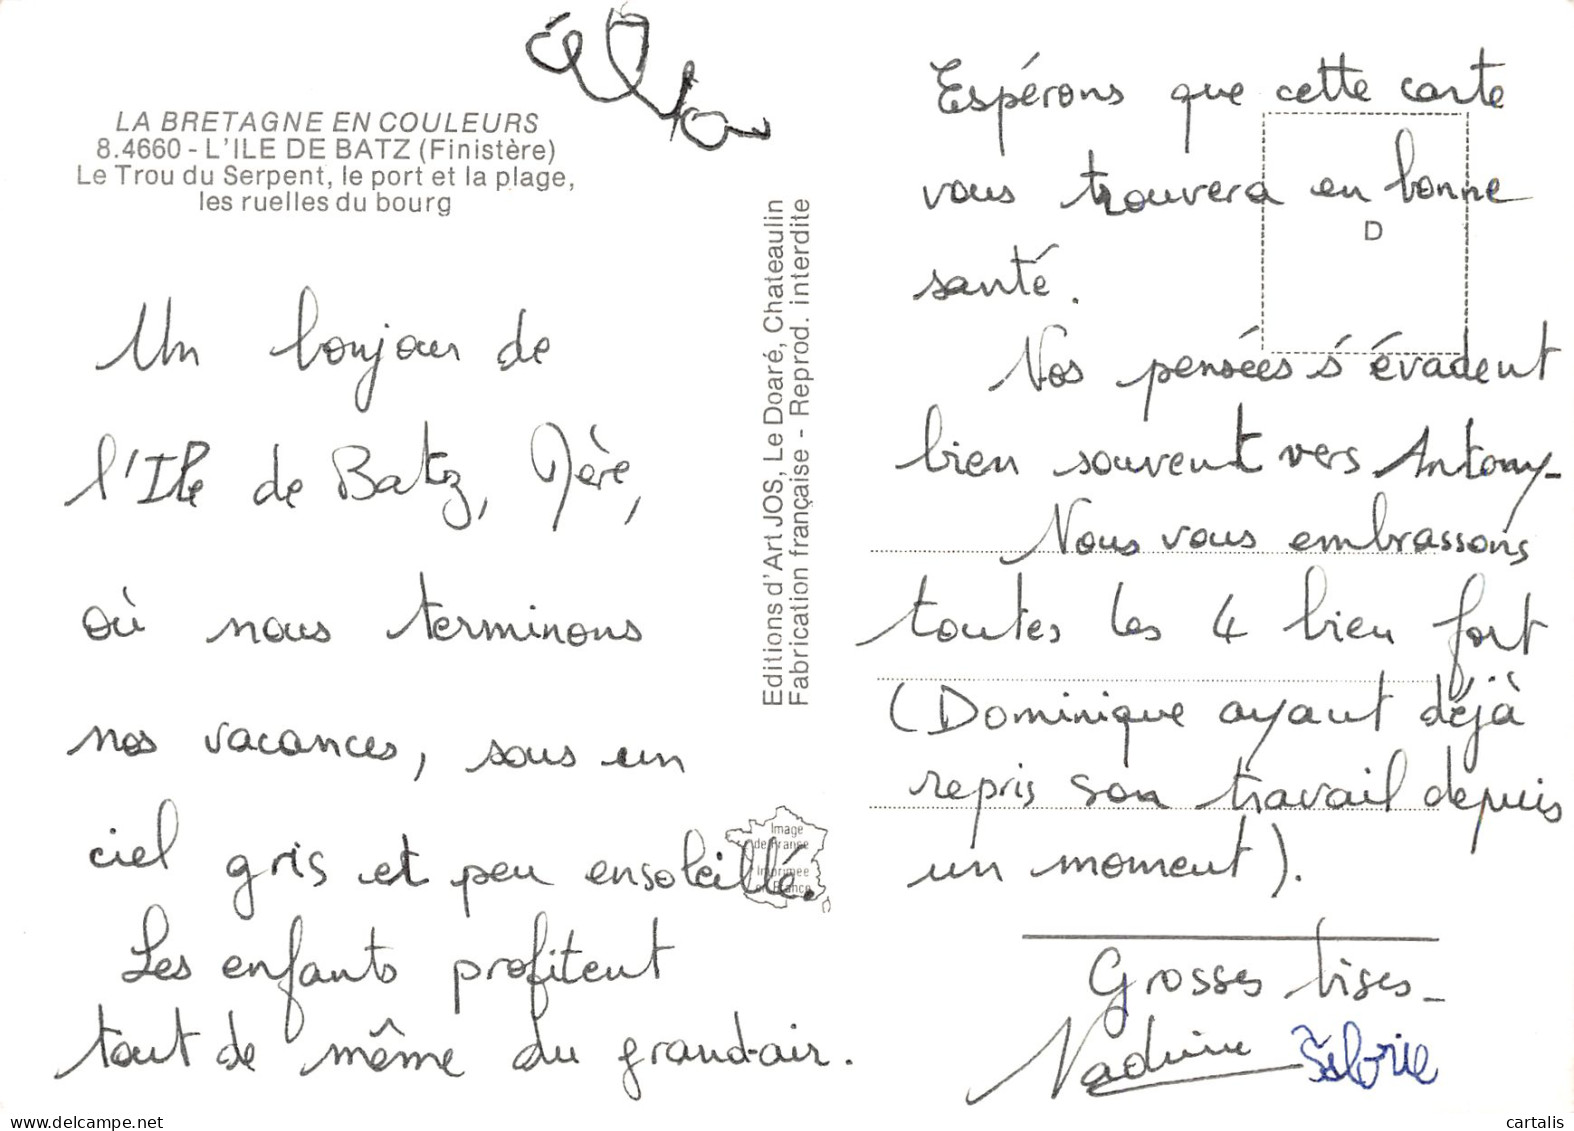 LA BRETAGNE EN COULEURS
8.4660 - L'ILE DE BATZ (Finistère)
Le Trou du Serpent, le port et la plage,
les ruelles du bourg
Un bonjour de
l'Ile de Batz, Mère,
où nous terminons
nos vacances, sous un
ciel gris et peu ensoleillé.
Les enfants profitent
tout de même du grand-air.
Editions d'Art JOS, Le Doaré, Chateaulin
Fabrication française - Reprod. interdite
Image
de France
Imprimée
en France
Espérons que cette carte
vous trouvera en bonne
D
santé.
Nos pensées s'évadent
bien souvent vers Antony-
Nous vous embrassons
toutes les 4 bien fort
(Dominique ayant déjà
repris son travail depuis
un moment).
Grosses bises-
Nadine
cartalis
delcampe.net